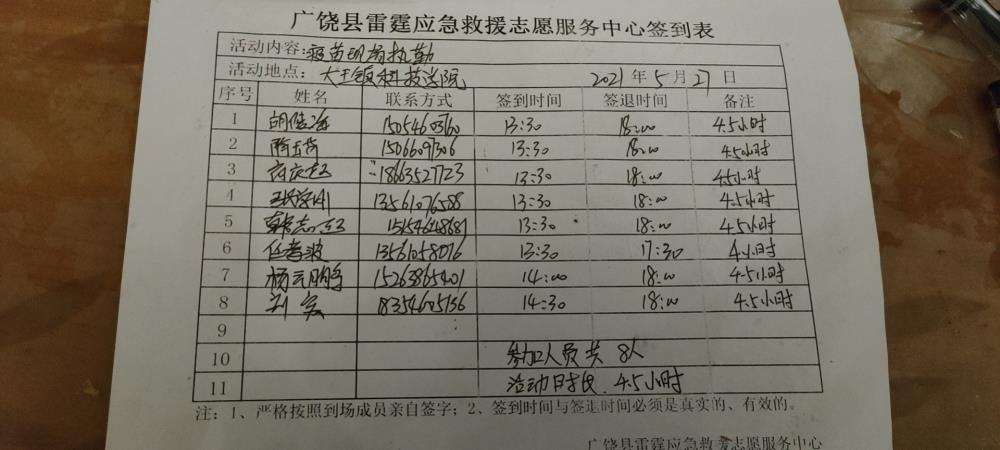 广饶县雷霆应急救援志愿服务中心签到表
活动内容:疫苗现场执勤
活动地点: 大王镇科技学院 2021年5月27日
序号 姓名 联系方式 签到时间 签退时间 备注
1 15054603760 13:30 18:00 4.5小时
2 15066097306 13:30 18:00 4.5小时
3 18663527723 13:30 18:00 4.5小时
4 13561076588 13:30 18:00 4.5小时
5 13:30 18:00 4.5小时
6 任书波 13561058076 13:30 17:30 4小时
7 杨云鹏 15263865401 14:00 18:00 4.5小时
8 18354605136 14:30 18:00 4.5小时
9
10 参加人员共 8人
11 活动日报 4.5小时
注:1、严格按照到场成员亲自签字;2、签到时间与签退时间必须是真实的、有效的。
广饶县雷霆应急救援志愿服务中心